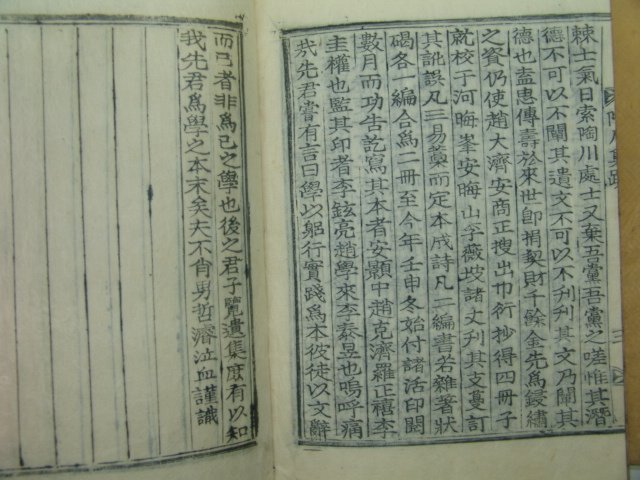 棘士氣日索陶川處士又棄吾黨吾黨之嗟惟其潛
德不可以不闡其遺文不可以不刊刊其文乃闡其
德也盍思傳壽於來世卽捐契財千餘金先爲鋟繡
之資仍使趙大濟安商正搜出巾衍抄得四冊子
就校于河晦峯安晦山李薇坡諸丈刊其支蔓訂
其訛誤凡三易藁而定本成詩凡一編書若雜著狀
碣各一編合爲二冊至今年壬申冬始付諸活印閱
數月而功告訖寫其本者安顯中趙克濟羅正禧李
圭權也監其印者李鉉亮趙學來李泰昱也嗚呼痛
哉先君嘗有言曰學以躬行實踐爲本彼徒以文辭
而已者非爲己之學也後之君子覽遺集庶有以知
我先君爲學之本末矣夫不肖男哲濬泣血謹識